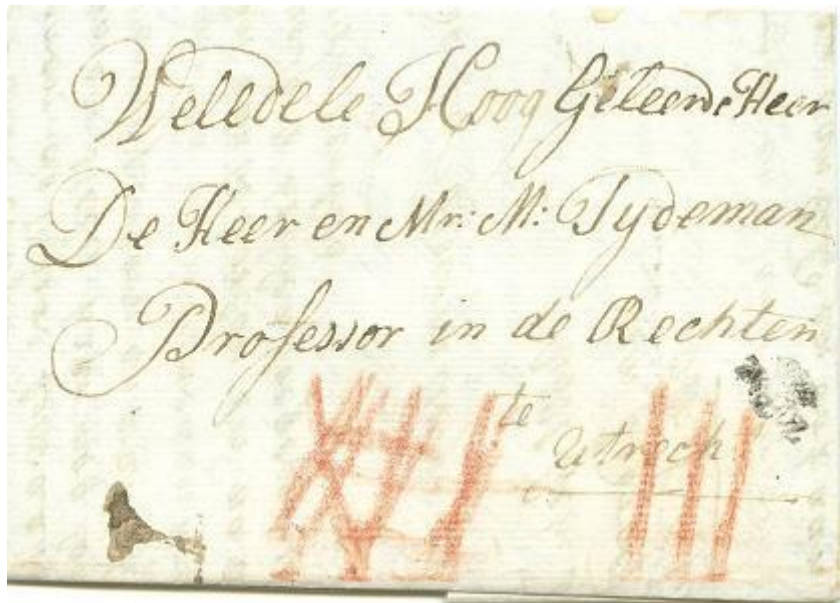 Weledele Hoog Geleerde Heer
De Heer en Mr: M: Tydeman
Professor in de Rechten
te
Utrecht